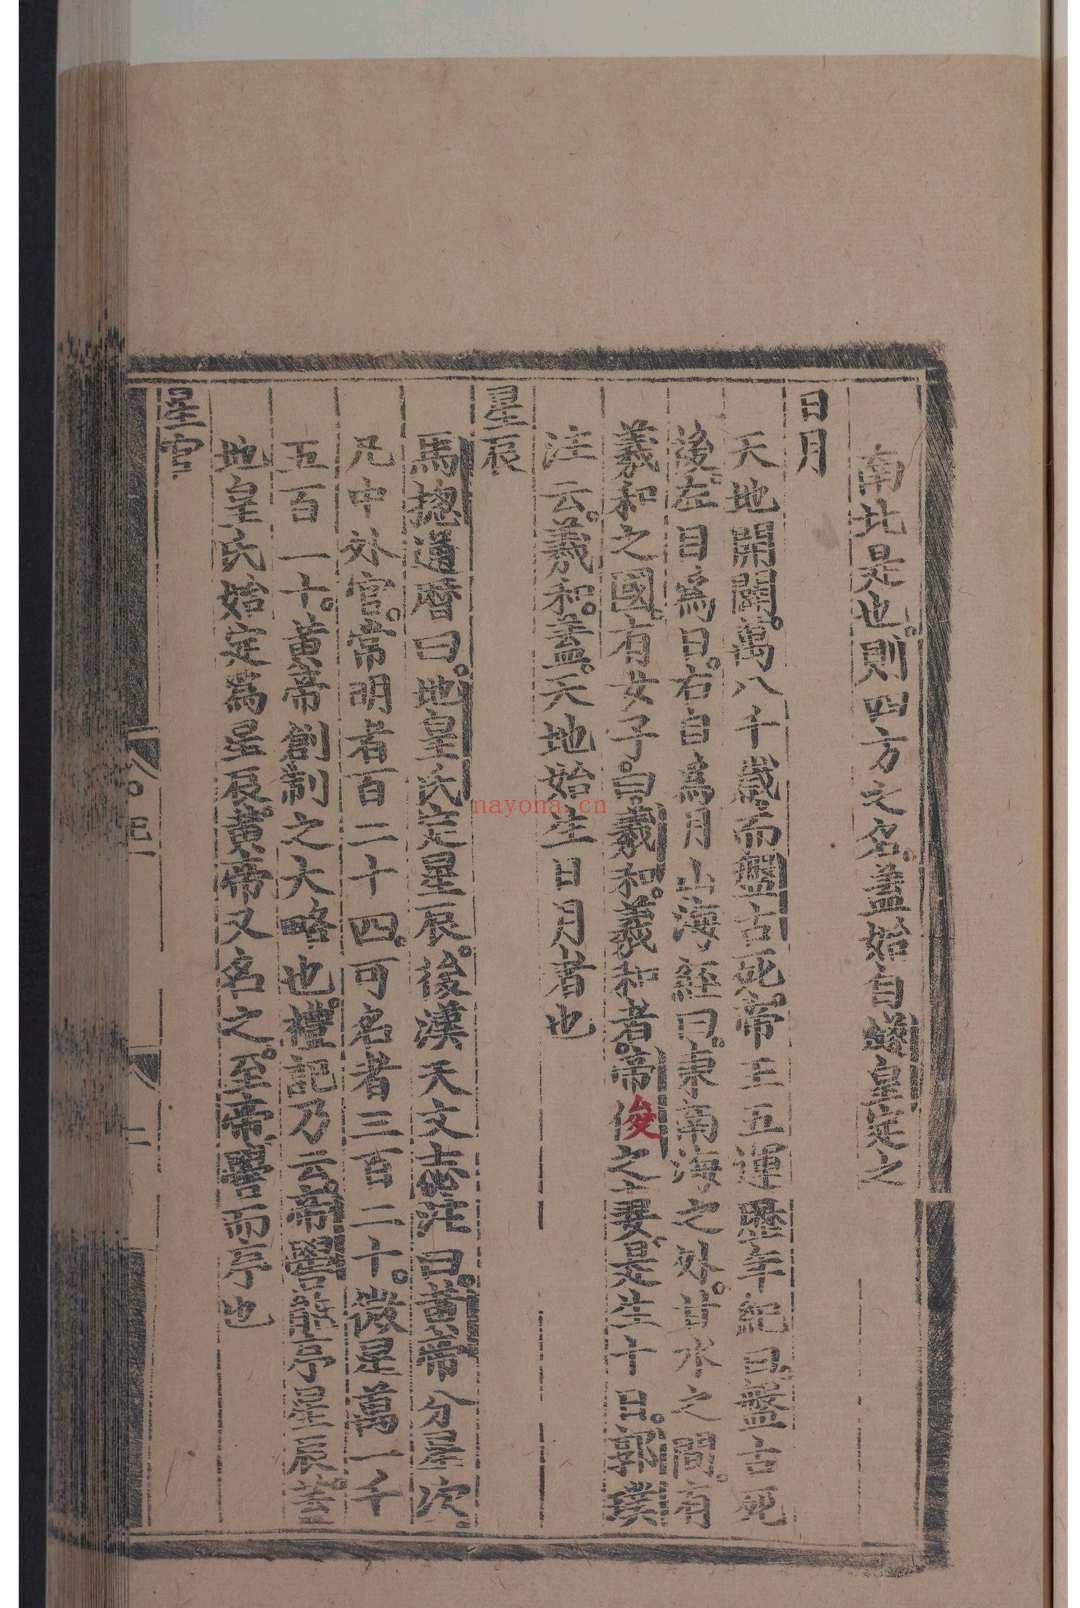 南北是也則四方之名蓋始自蠻皇定之
日月
天地開闢萬八千歲而盤古死帝王五運歷年紀曰盤古死
後左目為日右目為月山海經曰東南海之外甘水之間有
羲和之國有女子曰羲和羲和者帝俊之妻是生十日郭璞
注云羲和蓋天地始生日月者也
星辰
馬摠通曆曰地皇氏定星辰後漢天文志注曰黃帝分星次
凡中外官常明者百二十四可名者三百二十微星萬一千
五百一十黃帝創制之大略也禮記乃云帝嚳能序星辰蓋
地皇氏始定為星辰黃帝又名之至帝嚳而序也
星官
nayona.cn